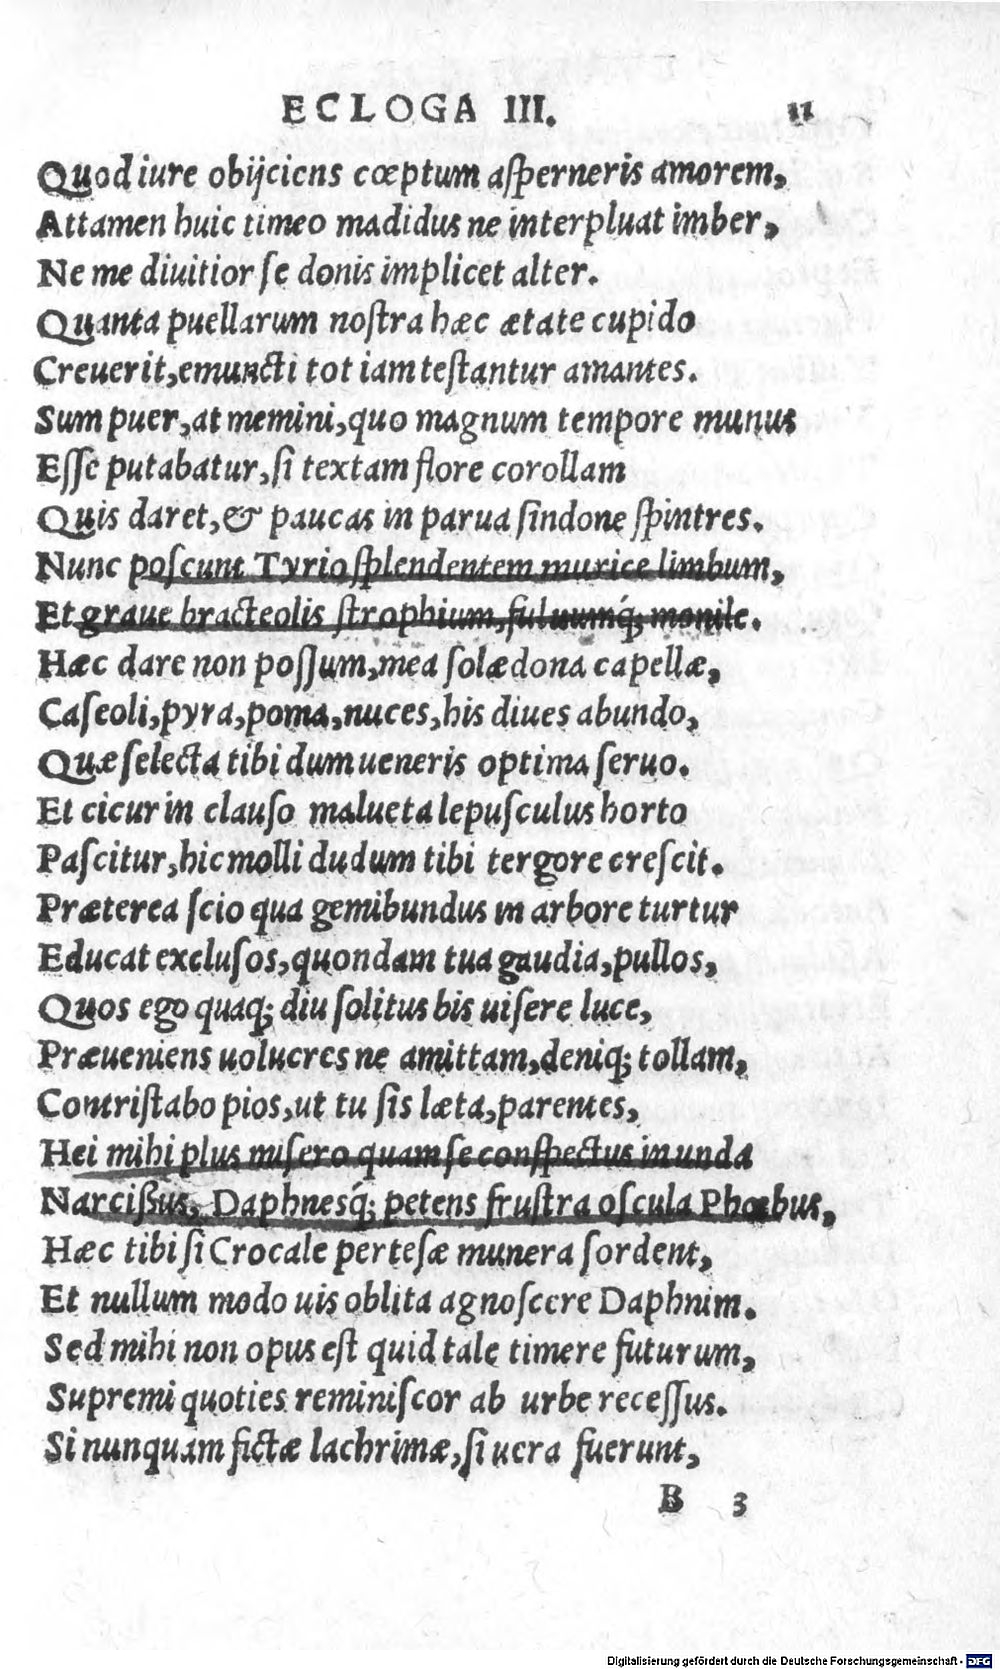 ECLOGA III. 11
Quod iure obijciens cœptum aſperneris amorem,
Attamen huic timeo madidus ne interpluat imber,
Ne me diuitior ſe donis implicet alter.
Quanta puellarum noſtra hæc ætate cupido
Creuerit, emuncti tot iam teſtantur amantes.
Sum puer, at memini, quo magnum tempore munus
Eſſe putabatur, ſi textam flore corollam
Quis daret, & paucas in parua ſindone ſpintres.
Nunc poſcunt Tyrio ſplendentem murice limbum,
Et graue bracteolis ſtrophium, fuluumq́; monile.
Hæc dare non poſſum, mea ſolæ dona capellæ,
Caſeoli, pyra, poma, nuces, his diues abundo,
Quæ ſelecta tibi dum ueneris optima ſeruo.
Et cicur in clauſo malueta lepuſculus horto
Paſcitur, hic molli dudum tibi tergore creſcit.
Præterea ſcio qua gemibundus in arbore turtur
Educat excluſos, quondam tua gaudia, pullos,
Quos ego quaq; diu ſolitus bis uiſere luce,
Præueniens uolucres ne amittam, deniq; tollam,
Contriſtabo pios, ut tu ſis læta, parentes,
Hei mihi plus miſero quam ſe conſpectus in unda
Narciſſus, Daphnesq́; petens fruſtra oſcula Phœbus,
Hæc tibi ſi Crocale perteſæ munera ſordent,
Et nullum modo uis oblita agnoſcere Daphnim.
Sed mihi non opus eſt quid tale timere futurum,
Supremi quoties reminiſcor ab urbe receſſus.
Si nunquam fictæ lachrimæ, ſi uera fuerunt,
B 3
Digitalisierung gefördert durch die Deutsche Forschungsgemeinschaft - DFG